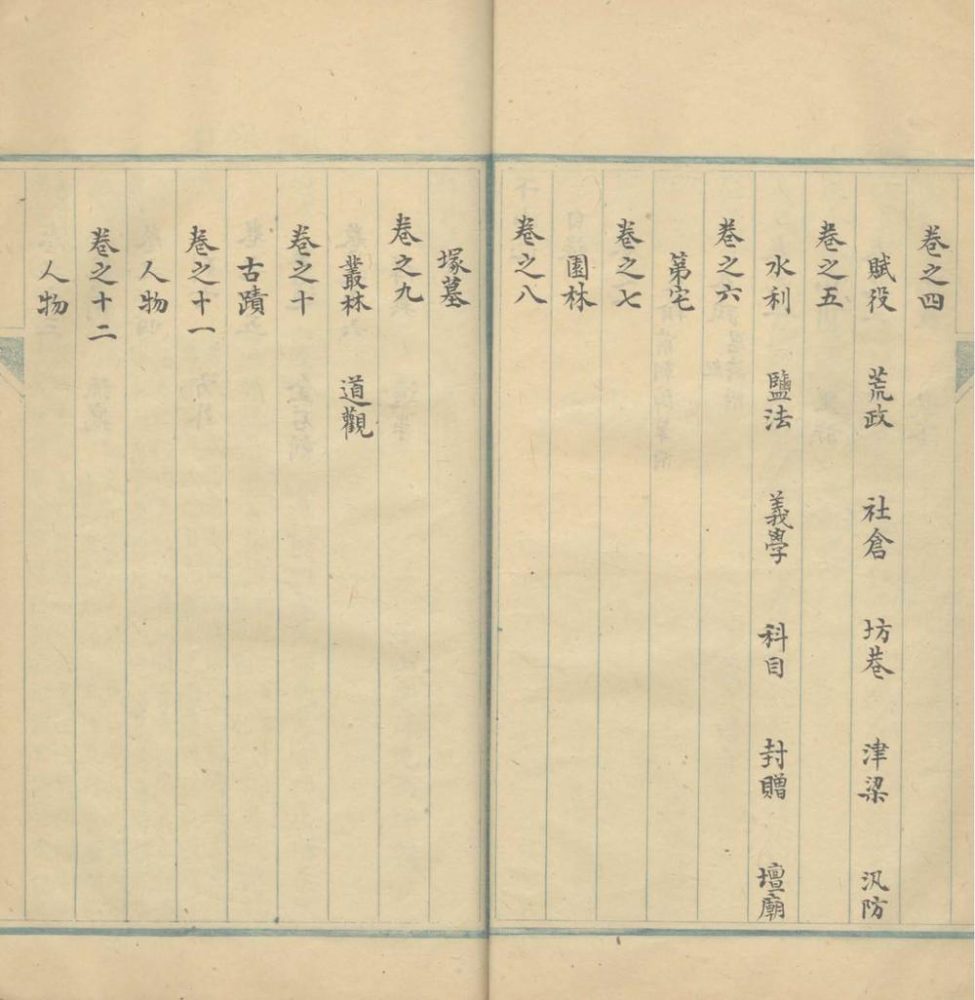 卷之四
賦役 荒政 社倉 坊巷 津梁 汛防
卷之五
水利 鹽法 義學 科目 封贈 壇廟
卷之六
第宅
卷之七
園林
卷之八
塚墓
卷之九
叢林 道觀
卷之十
古蹟
卷之十一
人物
卷之十二
人物